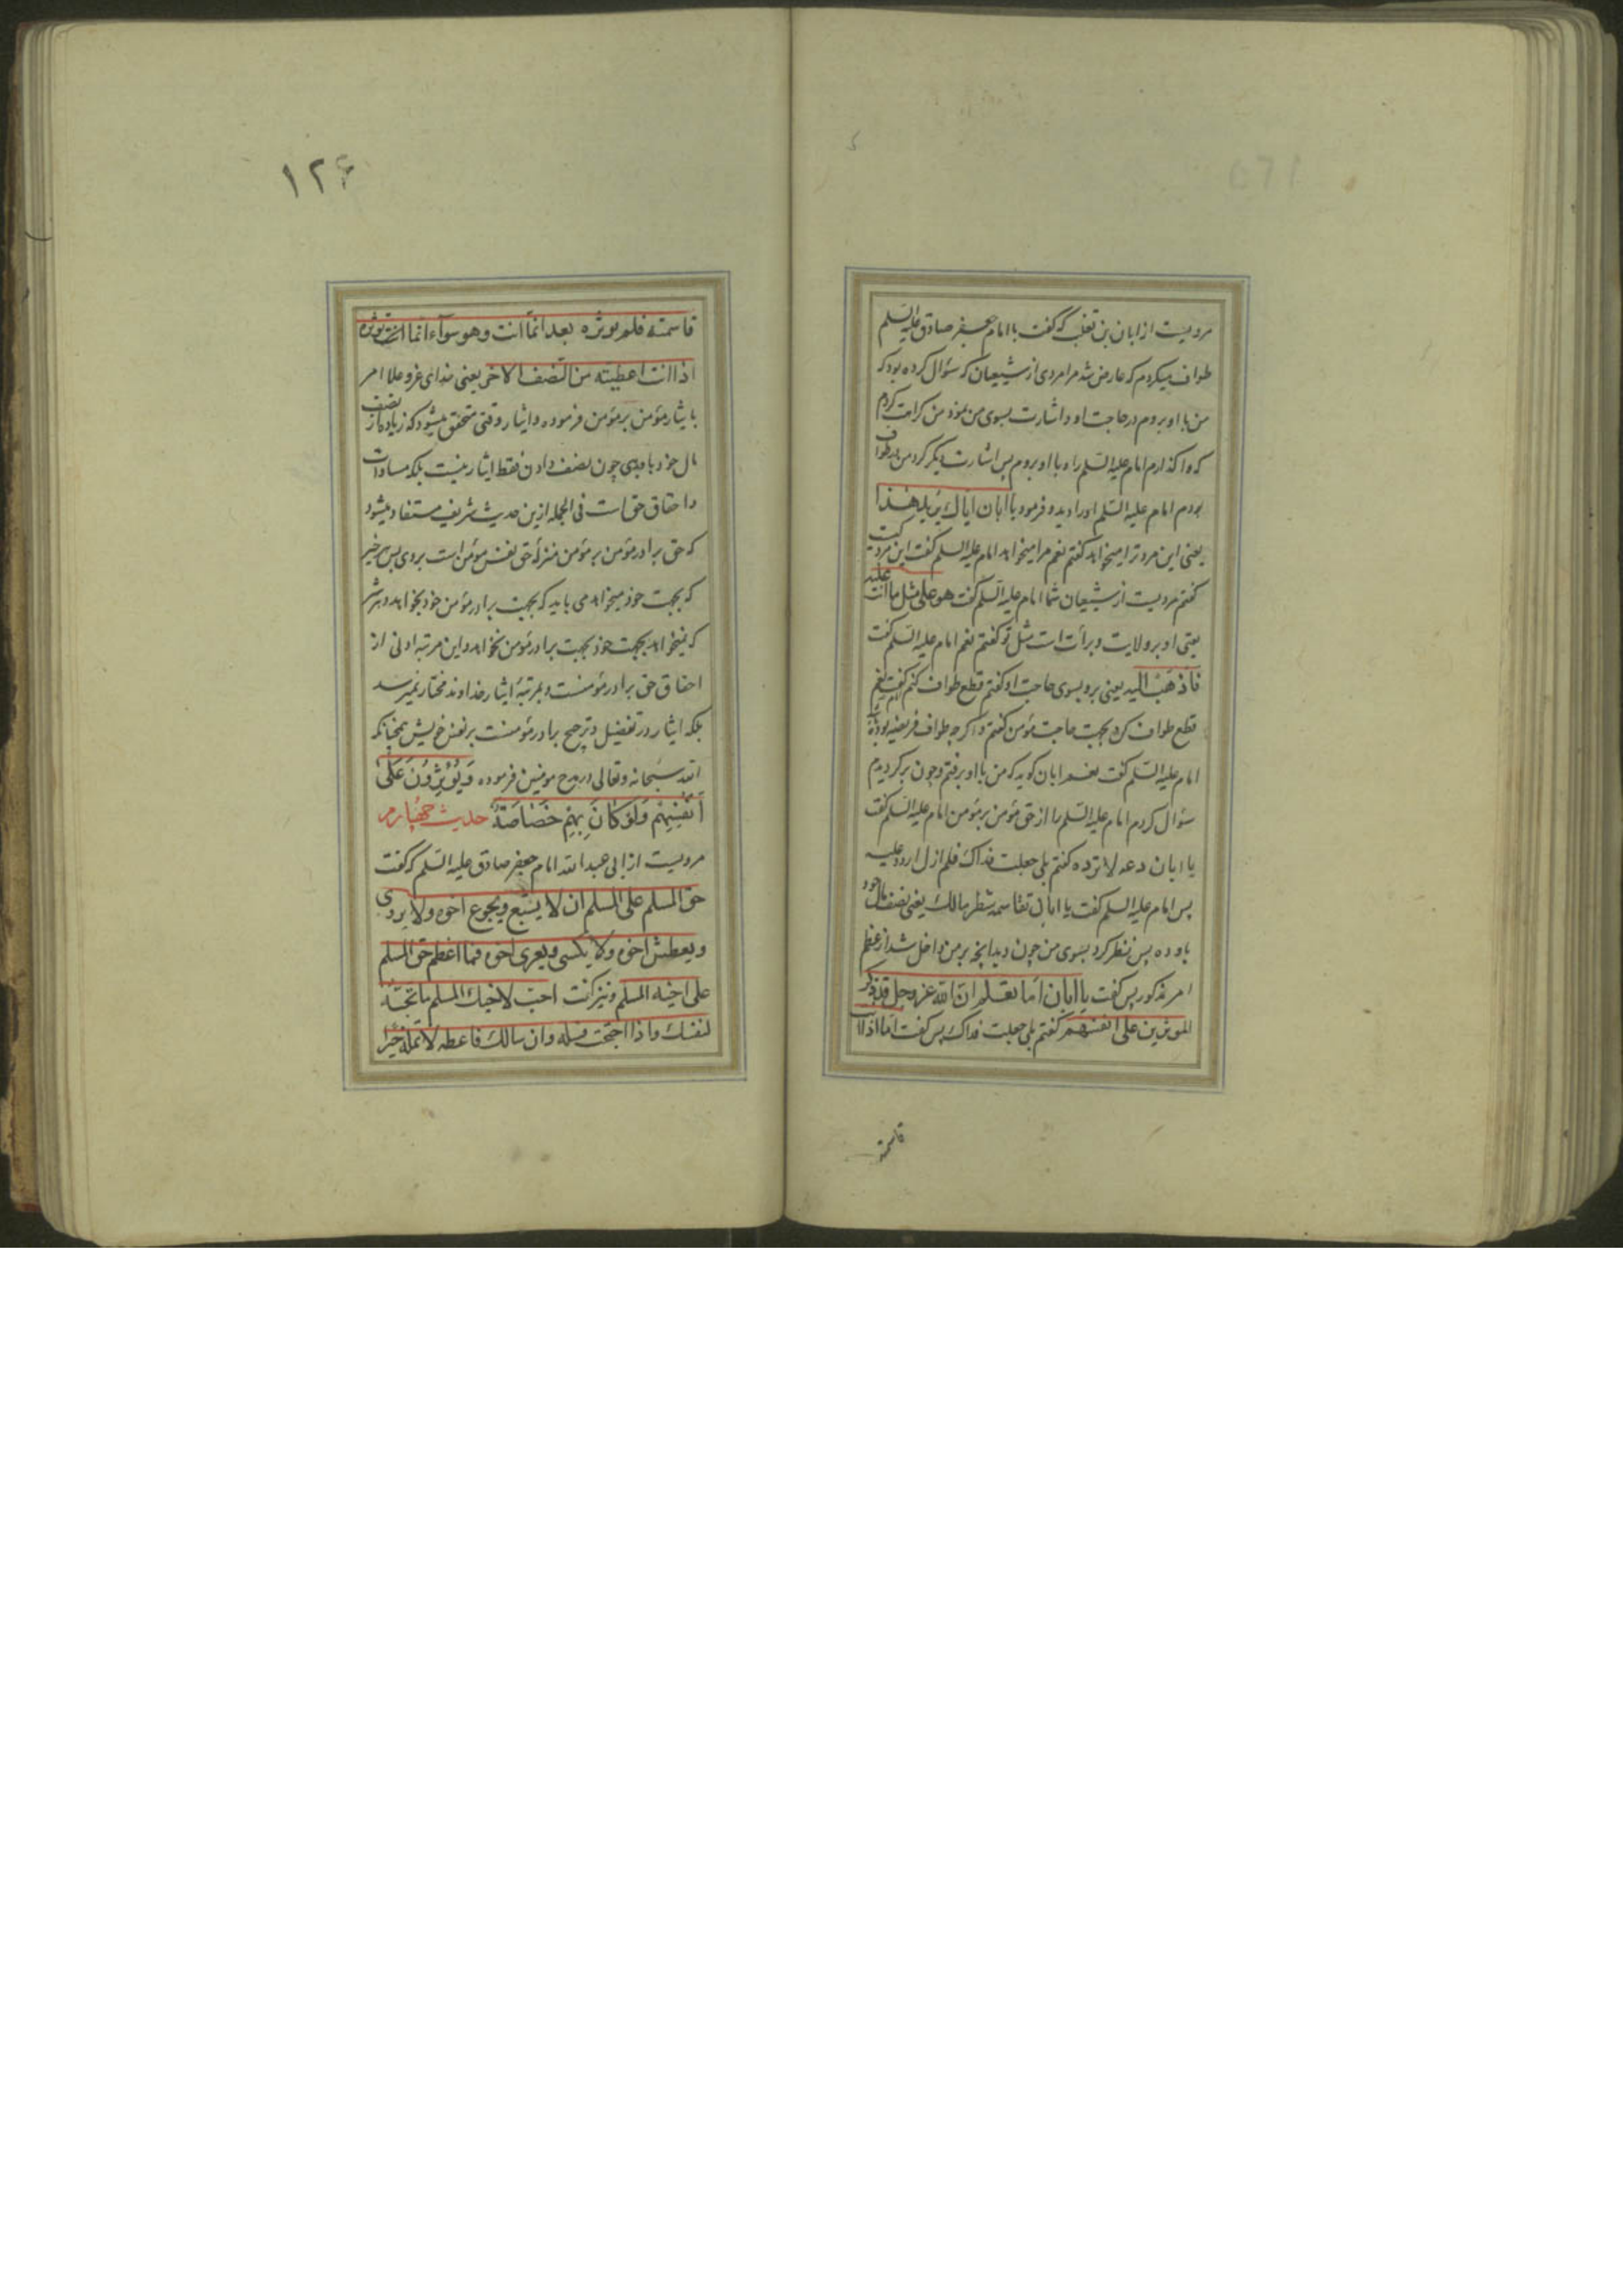 مرویست از ابان بن تغلب که گفت با امام جعفر صادق علیه السلم
طواف میکردم که عارض شد مرا مردی از شیعیان که سؤال کرده بود که
من با او بروم در حاجت او و اشارت بسوی من نمود من کراهت کردم
که واگذارم امام علیه السّلم را و با او بروم پس اشارت دیگر کرد من در طواف
بودم امام علیه السّلم او را دید و فرمود یا ابان ایاک یرید هذا
یعنی این مرد ترا میخواهد گفتم نعم مرا میخواهد امام علیه السلم گفت این مرد کیست
گفتم مردیست از شیعیان شما امام علیه السّلم گفت هو علی مثل ما انت علیه
یعنی او بر ولایت و برأت است مثل تو گفتم نعم امام علیه السّلم گفت
فاذهب الیه یعنی برو بسوی حاجت او گفتم قطع طواف کنم گفت نعم
قطع طواف کرد بجهت حاجت مؤمن گفتم و اگرچه طواف فریضه بوده
امام علیه السّلم گفت نعم ابان گوید که من با او برفتم و چون برگردیدم
سؤال کردم امام علیه السّلم را از حق مؤمن بر مؤمن امام علیه السّلم گفت
یا ابان دعه لا ترده گفتم بلی جعلت فداک فلم ازل اردد علیه
پس امام علیه السلم گفت یا ابان تقاسمه شطر مالک یعنی نصف مال خود
باو ده پس نظر کرد بسوی من چون دید آنچه بر من داخل شد از عظم
امر مذکور پس گفت یا ابان اما تعلم ان الله عز و جل قد ذکر
الموثرین علی انفسهم گفتم بلی جعلت فداک پس گفت اما اذا انت
قاسمته
۱۲۶
قاسمته فلم توثره بعد انّما انت و هو سوآء انّما انت توثره
اذا انت اعطیته من النصف الاخر یعنی خدای عز و علا امر
بایثار مؤمن بر مؤمن فرموده و ایثار وقتی متحقق میشود که زیاده از نصف
مال خود باو بدی چون نصف دادن فقط ایثار نیست بلکه مساوات
و احقاق حق است فی الجمله ازین حدیث شریف مستفاد میشود
که حق برادر مؤمن بر مؤمن بمنزلهٔ حق نفس مؤمن است بر وی پس هر خیر
که بجهت خود میخواهد می باید که بجهت برادر مؤمن خود بخواهد و هر شر
که نمیخواهد بجهت خود بجهت برادر مؤمن نخواهد و این مرتبه ادنی از
احقاق حق برادر مؤمنست و بمرتبهٔ ایثار خداوند مختار نمیرسد
بلکه ایثار در تفضیل و ترجیح برادر مؤمنست بر نفس خویش همچنانکه
الله سبحانه و تعالی در مدح مومنین فرموده وَیُؤْثِرُونَ عَلٰی
اَنْفُسِهِمْ وَلَوْ کَانَ بِهِمْ خَصَاصَةٌ حدیث چهارم
مرویست از ابی عبد الله امام جعفر صادق علیه السّلم که گفت
حق المسلم علی المسلم ان لا یشبع و یجوع اخوه ولا یروی
و یعطش اخوه ولا یکسی و یعری اخوه فما اعظم حق المسلم
علی اخیه المسلم و نیز گفت احبّ لاخیک المسلم ما تحبّه
لنفسک و اذا احتجت فسله و ان سالک فاعطه لا تمله خیرا